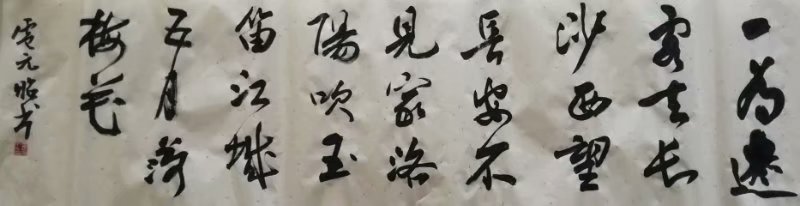 一為遷
客去长
沙西望
長安不
見家洛
陽吹玉
笛江城
五月
梅花
元临书